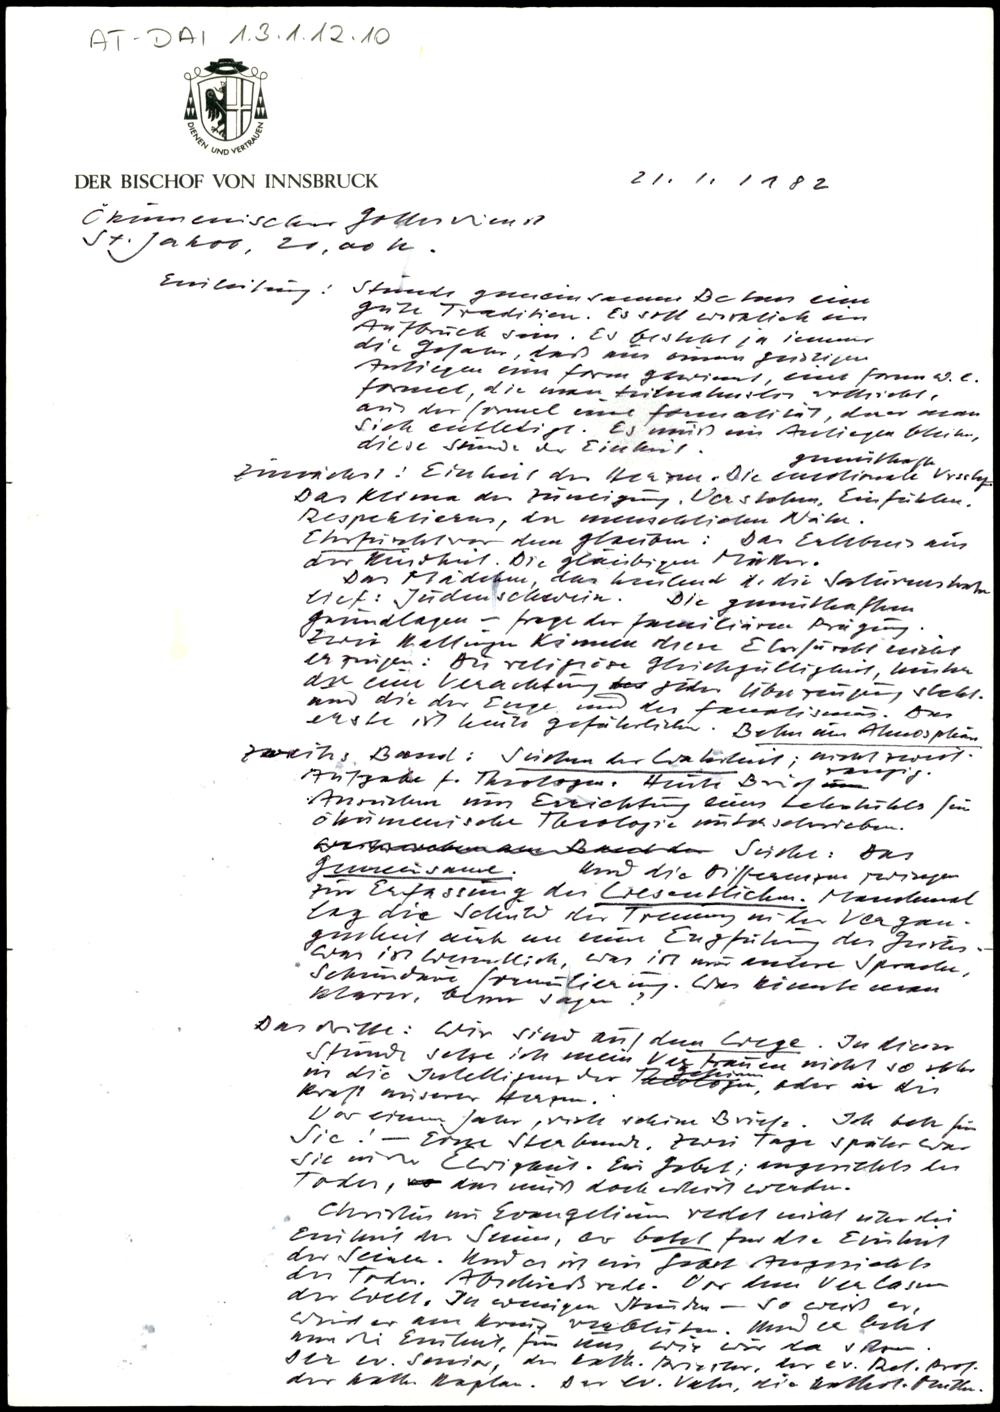 AT-DAI 1.3.1.12.10
DIENEN UND VERTRAUEN
DER BISCHOF VON INNSBRUCK
21. 1. 1982
Ökumenischer Gottesdienst
St. Jakob, 20,00 h.
Einleitung: Stunde gemeinsamen Betens eine
gute Tradition. Es soll wirklich ein
Aufbruch sein. Es besteht ja immer
die Gefahr, daß aus einem geistigen
Anliegen eine Form gewinnt, eine Form w. e.
Formel, die man teilnahmslos vollzieht,
aus der Formel eine Formalität, derer man
sich entledigt. Es muß ein Anliegen bleiben,
diese Stunde der Einheit.
gemüthafte
Zunächst: Einheit der Herzen. Die emotionale
Das Klima der Zuneigung, Verstehen, Einfühlen,
Respektieren, der menschlichen Nähe.
Ehrfurcht vor dem Glauben: Das Erlebnis aus
der Kindheit. Die gläubigen Mütter.
Das Mädchen, das heulend d. die
lief: Judenschwein. Die gemüthaften
Grundlagen – Frage der familiären Prägung.
Zwei Haltungen können diese Ehrfurcht nicht
erzeugen: Die religiöse Gleichgültigkeit, hinter
der eine Verachtung jeder Überzeugung steht.
und die der Enge und des Fanatismus. Das
erste ist heute gefährlicher. Beten um Atmosphäre
Zweites Band: Suchen der Wahrheit; nicht zweit-
rangig.
Aufgabe f. Theologen. Heute Brief
Ansuchen um Errichtung eines Lehrstuhls für
ökumenische Theologie unterschrieben.
Suche: Das
Gemeinsame. Und die Differenzen zwingen
zur Erfassung des Wesentlichen. Manchmal
lag die Schuld der Trennung in der Vergan-
genheit auch an einer Engführung des Geistes –
Was ist wesentlich, was ist nur andere Sprache,
sekundäre Formulierung. Was könnte man
klarer, besser sagen?
Das dritte: Wir sind auf dem Wege. In dieser
Stunde setze ich mein Vertrauen nicht so sehr
in die Intelligenz der Theologen, oder in die
Kraft unserer Herzen.
Vor einem Jahr, viele schöne Briefe. Ich bete für
Sie! – Eine Sterbende. Zwei Tage später war
sie in der Ewigkeit. Ein Gebet, angesichts des
Todes, das muß doch erhört werden.
Christus im Evangelium redet nicht über die
Einheit der Seinen, er betet für die Einheit
der Seinen. Und es ist ein Gebet Angesichts
des Todes. Abschiedsrede. Vor dem Verlassen
der Welt. In wenigen Stunden – so weiß er,
wird er am Kreuz verbluten. Und er betet
um die Einheit, für uns, wie wir da sitzen.
Der ev. Senior, der kath. Priester, der ev. Rel. Prof.
der kath. Kaplan. Der ev. Vater, die kathol. Mutter.